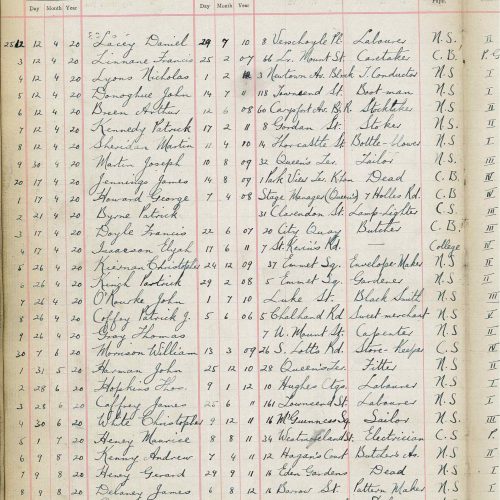 Day Month Year Day Month Year Pups.
2512 12 4 20 Lacey Daniel 29 7 10 8 Verschoyle Pl. Labourer N.S. II
3 12 4 20 Linnane Francis 25 2 07 66 Lr. Mount St. Caretaker C.B.
4 12 4 20 Lyons Nicholas 1 2 3 Newtown Av. Block T. Conductor N.S I
5 12 4 20 Donoghue John 14 7 11 118 Townsend St. Bootman N.S. I
6 12 4 20 Breen Arthur 12 6 08 60 Stocktaker N.S.
7 12 4 20 Kennedy Patrick 17 2 11 8 Gordon St. Stoker N.S. II
8 12 4 20 Sheridan Martin 11 4 10 14 Thorcastle St. Bottle-blower N.S I
9 30 4 20 Martin Joseph 10 8 09 32 Queen's Ter. Tailor N.S.
20 17 4 20 Jennings James 14 8 09 1 Park View Ter. Dead C.B
1 17 4 20 Howard George 7 4 08 Stage Manager (Queen's) 7 Holles Rd. C.B
2 21 4 20 Byrne Patrick 31 Clarendon St. Lamp-Lighter C.S
3 17 4 20 Doyle Francis 22 6 07 20 City Quay Butcher C.B
4 17 4 20 Isaacson Elyah 17 6 11 7 St. Kevin's Rd. — College
5 26 4 20 Kiernan Christopher 24 12 09 37 Emmet Sq. Envelope-Maker N.S II
6 26 4 20 Keogh Patrick 29 2 08 5 Emmet Sq. Gardener N.S
7 26 4 20 O'Rourke John 1 7 10 Luke St. Black Smith N.S III
8 26 4 20 Coffey Patrick J. 5 6 06 5 Rd Sweet merchant N.S
9 26 4 20 Gray Thomas 7 U. Mount St. Carpenter N.S
30 7 6 20 Morrison William 13 3 09 26 S. Lotts Rd. Store-Keeper C.S
1 31 5 20 Harman John 25 12 10 28 Queen's Ter. Fitter N.S
2 28 6 20 Hopkins Thos. 9 1 12 10 Hughes Ctgs. Labourer N.S I
3 28 6 20 Caffrey James 25 6 11 161 Townsend St. Labourer N.S I
4 30 6 20 White Christopher 9 12 11 16 McGuinness Sq. Sailor N.S. III
5 1 7 20 Henry Maurice 8 8 11 34 Westmoreland St. Electrician C.S
6 9 8 20 Kenny Andrew 7 4 11 12 Hagan's Court Butler's As. N.S
7 9 8 20 Henry Gerard 29 9 11 16 Eden Gardens Dead N.S I
8 9 8 20 Delaney James 6 8 12 16 Barrow St. Pattern Maker N.S